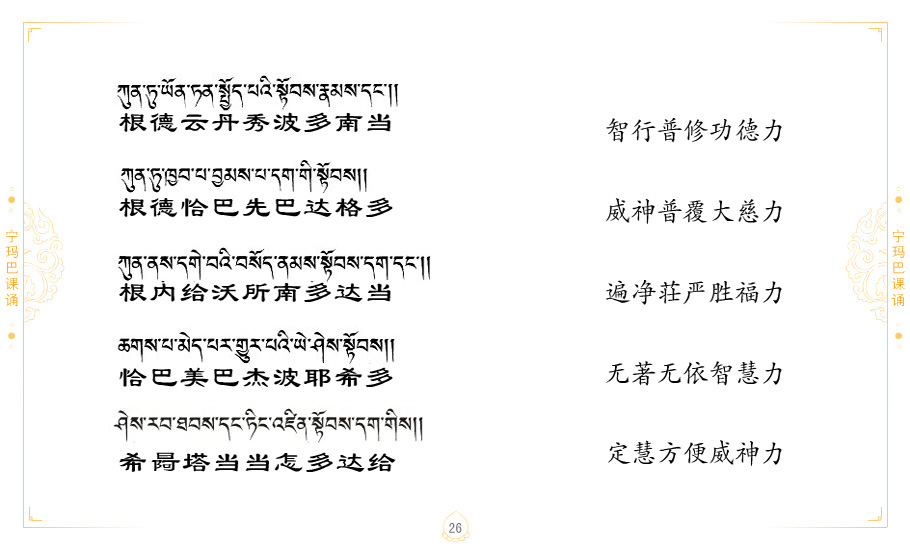 ཀུན་ཏུ་ཡོན་ཏན་སྤྱོད་པའི་སྟོབས་རྣམས་དང་།།
根德云丹秀波多南当
智行普修功德力
ཀུན་ཏུ་ཁྱབ་པ་བྱམས་པ་དག་གི་སྟོབས།།
根德恰巴先巴达格多
威神普覆大慈力
ཀུན་ནས་དགེ་བའི་བསོད་ནམས་སྟོབས་དག་དང་།།
根内给沃所南多达当
遍净莊严胜福力
ཆགས་པ་མེད་པར་གྱུར་པའི་ཡེ་ཤེས་སྟོབས།།
恰巴美巴杰波耶希多
无著无依智慧力
ཤེས་རབ་ཐབས་དང་ཏིང་འཛིན་སྟོབས་དག་གིས།།
希㖇塔当当怎多达给
定慧方便威神力
宁玛巴课诵
宁玛巴课诵
26